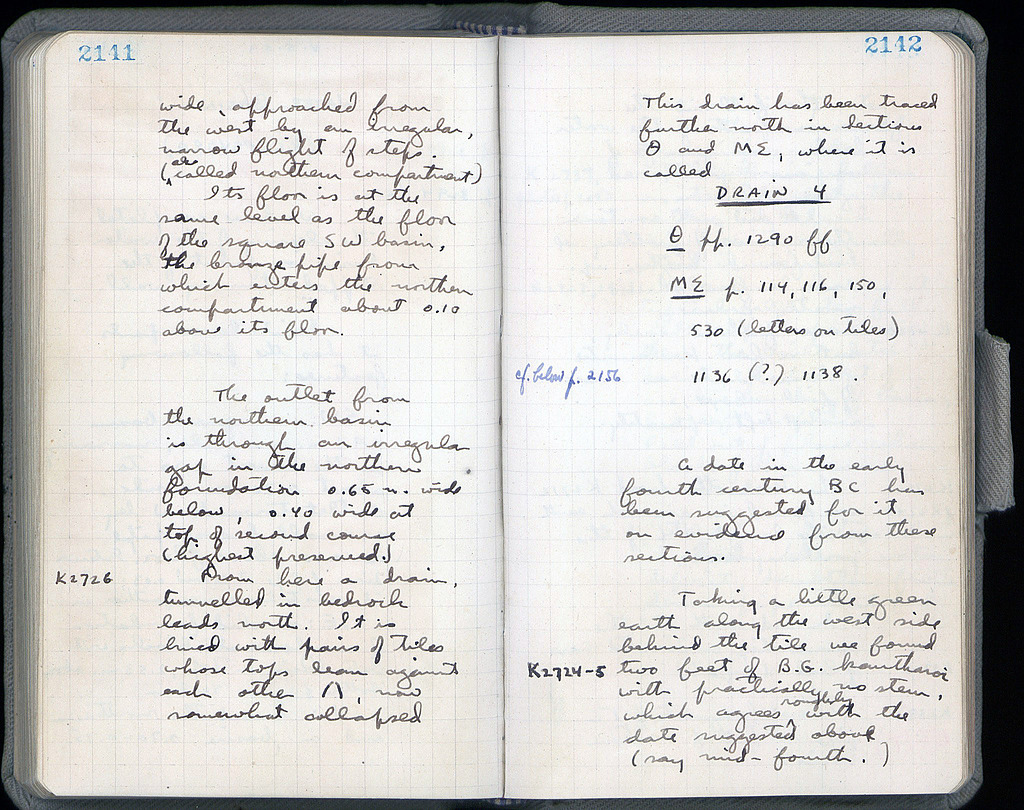 2141
wide, approached from
the west by an irregular,
narrow flight of steps.
(also called northern compartment)
Its floor is at the
same level as the floor
of the square SW basin,
the bronze pipe from
which enters the northern
compartment about 0.10
above its floor.
The outlet from
the northern basin
is through an irregular
gap in the northern
foundation 0.65 m. wide
below, 0.40 wide at
top of second course
(highest preserved.)
K2726
From here a drain,
tunnelled in bedrock
leads north. It is
lined with pairs of tiles
whose tops lean against
each other /\, now
somewhat collapsed
2142
This drain has been traced
further north in sections
Θ and ΜΣ, where it is
called
DRAIN 4
Θ pp. 1290 ff
ΜΣ p. 114, 116, 150,
530 (letters on tiles)
cf. below p. 2156
1136 (?) 1138.
A date in the early
fourth century BC has
been suggested for it
on evidence from these
sections.
Taking a little green
earth along the west side
behind the tile we found
K2724-5
two feet of B.G. kantharoi
with practically no stem,
which agrees roughly with the
date suggested above
(say mid-fourth.)